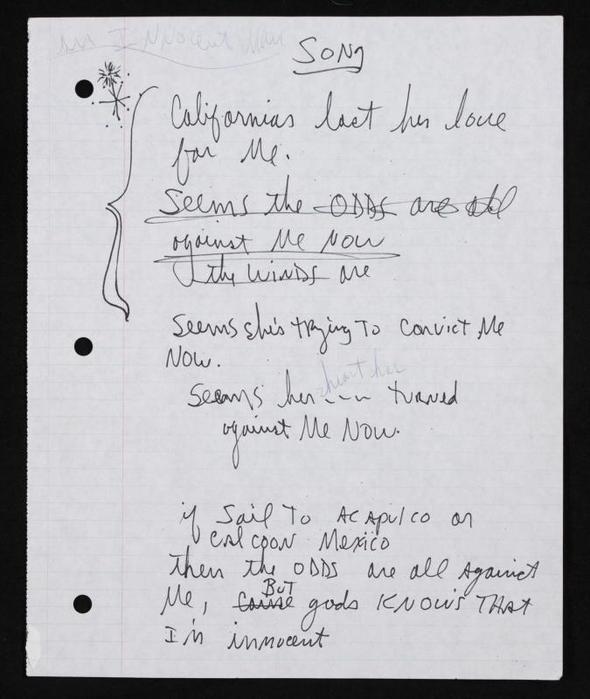 an Innocent Man
SONG
Californias lost her love
for Me.
Seems the ODDS are all
against Me NOW
the WINDS are
Seems she's trying To Convict Me
NOW.
heart has
Seams her --- turned
against Me NOW.
if Sail To ACApulco or
CalCoon Mexico
then the ODDS are all Against
BUT
Me, Cause gods KNOWS THAT
I'm innocent